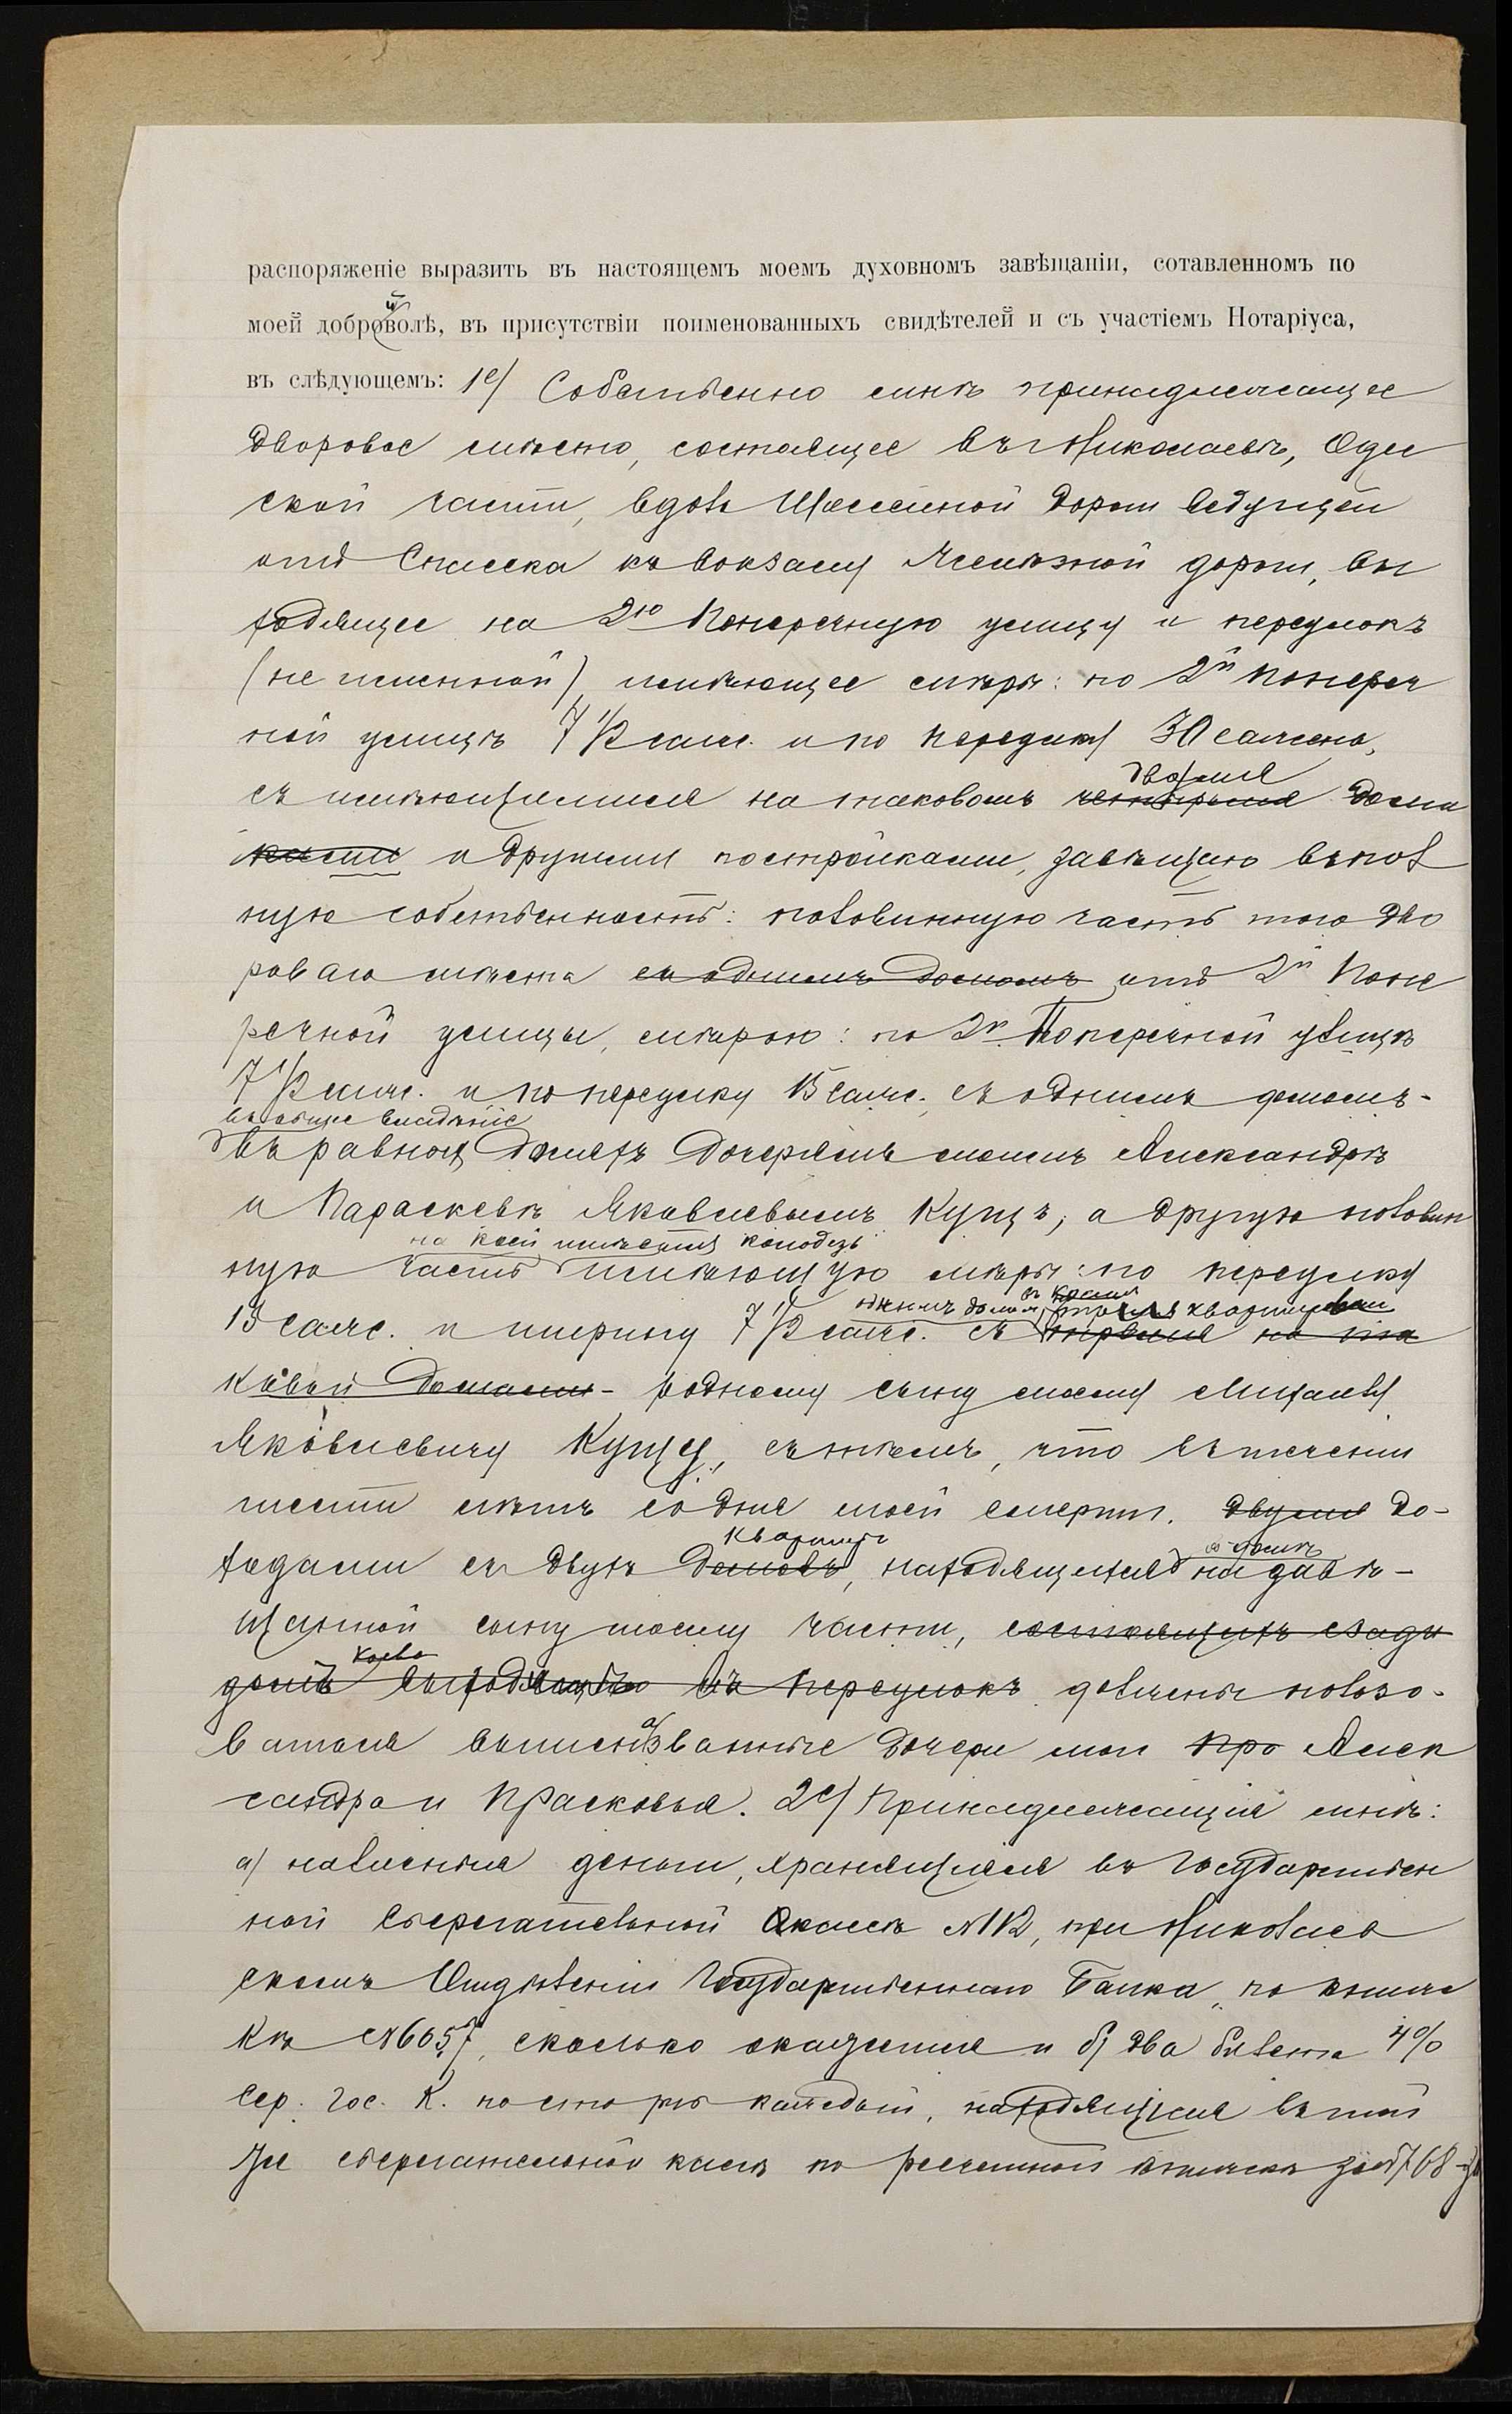 распоряженіе выразить въ настоящемъ моемъ духовномъ завѣщаніи, сотавленномъ по
й
моей добровóлѣ, въ присутствіи поименованныхъ свидѣтелей и съ участіемъ Нотаріуса,
въ слѣдующемъ: 1е/ Собственно мнѣ принадлежащее
дворовое мѣсто, состоящее въ г Николаевѣ, Одес
ской части, вдоль Шоссейной дороги ведущей
отъ Спасска къ вокзалу Желѣзной дороги, вы
ходящее на 2ю Поперечную улицу и переулокъ
(не именной), имѣющее мѣры: по 2й Попереч
ной улицѣ 7 1/2 саж. и по переулку 30 сажень,
двумя
съ имѣющимися на таковомъ четырьмя доми
ками и другими постройками, завѣщаю въ пол
ную собственность: половинную часть того дво
роваго мѣста съ однимъ домомъ отъ 2й Попе
речной улицы, мѣрою: по 2й Поперечной улицѣ
7 1/2 саж. и по переулку 15 саж. съ однимъ домомъ -
въ общее владѣніе
въ равныхъ доляхъ дочерямъ моимъ Александрѣ
и Параскевѣ Яковлевымъ Купцъ, а другую половин
на коей имѣется колодезь
ную часть имѣющую мѣры: по переулку
однимъ домомъ, въ квартирами
15 саж. и ширину 7 1/2 саж. съ тремя на та
ковой домами - родному сыну моему Михаилу
Яковлевичу Купцу, съ тѣмъ, что въ теченіи
шести лѣтъ со дня моей смерти. двумя до-
квартиръ
въ домѣ
ходами съ двухъ домовъ, находящихся на завѣ-
щанной сыну моему части, состоящихъ сзади
коего
домъ выходящаго въ переулокъ должны пользо-
ваться вышеназванные дочери мои Про Алек
сандра и Прасковья. 2е/ Принадлежащія мнѣ:
а) наличныя деньги, хранящіяся въ Государствен
ной Сберегательной кассѣ №112, при Николаев
скомъ Отдѣленіи Государственнаго Банка, по книж
кѣ №6057, сколько окажется и б) два билета 4%
Сер. Гос. К. по сто руб каждый, находящіеся въ той
же сберегательной кассѣ по разсчетной книжкѣ за №768